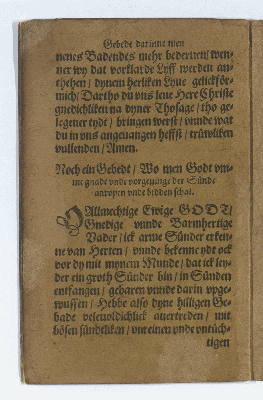 Gebedt darinne men
nenes Badendes mehr bederven/ wen-
ner wy dat vorklarde Lyff werden an-
thehen/ dynem herliken Lyve gelickför-
mich/ Dartho du vns leue Here Christe
gnedichliken na dyner Thosage/ tho ge-
legener tydt/ bringen werst/ vnnde wat
du in vns angeuangen heffst/ trüwliken
vullenden/ Amen.
Noch ein Gebedt/ Wo men Godt vm-
me gnade vnde vorgeuinge der Sünde
anropen vnde bidden schal.
O Allmechtige Ewige GODT/
Gnedige vnnde Barmhertige
Vader/ ick arme Sünder erken-
ne van Herten/ vnnde bekenne ydt ock
vor dy mit mynem Munde/ dat ick ley-
der ein groth Sünder bin/ in Sünden
entfangen/ gebaren vnnde darin vpge-
wussen/ Hebbe also dyne hilligen Ge-
bade veleuoldichlick auertreden/ mit
bösen sündtliken/ vnreinen vnde vntüch-
tigen